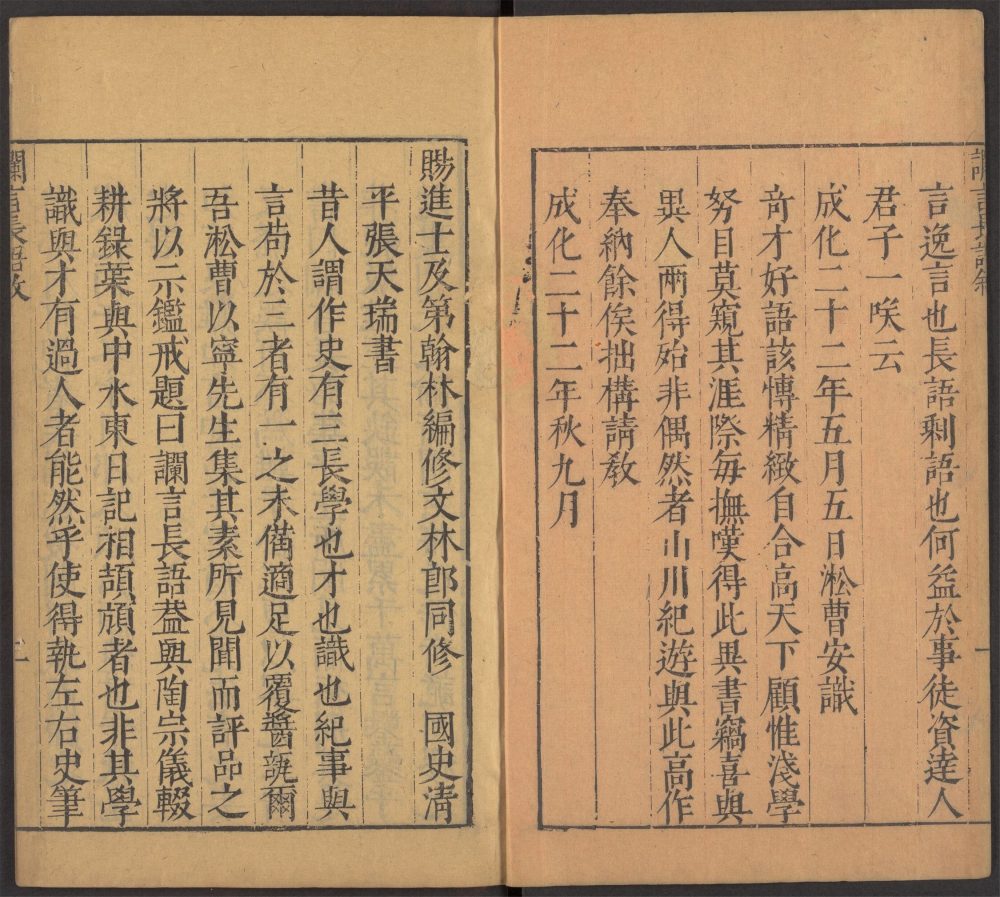 言長語敘
一
言逸言也長語剩語也何益於事徒資達人
君子一咲云
成化二十二年五月五日淞曹安識
竒才好語該愽精緻自合高天下顧惟淺學
努目莫窺其涯際毎撫嘆得此異書竊喜與
異人兩得殆非偶然者小川紀遊與此高作
奉納餘俟拙構請敎
成化二十二年秋九月
賜進士及第翰林編修文林郎同修 國史清
平張天瑞書
昔人謂作史有三長學也才也識也紀事與
言苟於三者有一之未備適足以覆醬瓿爾
吾淞曹以寧先生集其素所見聞而評品之
將以示鑑戒題曰讕言長語葢與陶宗儀輟
耕録葉與中水東日記相頡頏者也非其學
識與才有過人者能然乎使得執左右史筆
讕言長語敘
二